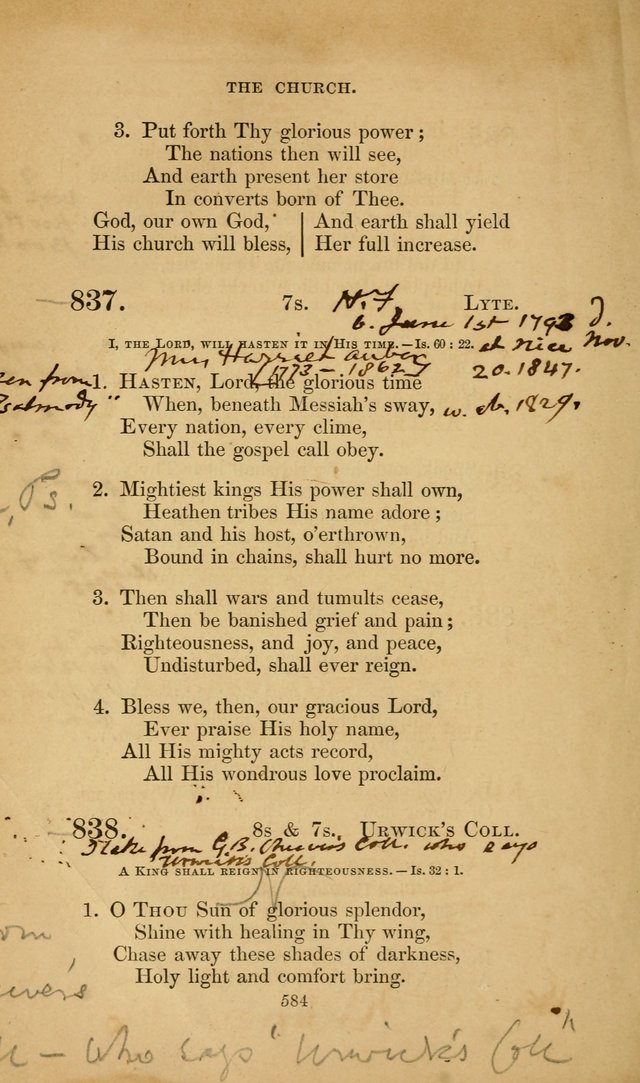 THE CHURCH.
3. Put forth Thy glorious power;
The nations then will see,
And earth present her store
In converts born of Thee.
God, our own God, | And earth shall yield
His church will bless, | Her full increase.
837. 7s. H. F. LYTE.
b. June 1st 1793 d.
I, THE LORD, WILL HASTEN IT IN HIS TIME.—Is. 60 : 22. at Nice Nov.
Miss Harriet Auber 20. 1847.
(1773-1862)
en from
1. HASTEN, Lord, the glorious time
salmody"
When, beneath Messiah's sway, 1829.
Every nation, every clime,
Shall the gospel call obey.
Ps.
2. Mightiest kings His power shall own,
Heathen tribes His name adore;
Satan and his host, o'erthrown,
Bound in chains, shall hurt no more.
3. Then shall wars and tumults cease,
Then be banished grief and pain;
Righteousness, and joy, and peace,
Undisturbed, shall ever reign.
4. Bless we, then, our gracious Lord,
Ever praise His holy name,
All His mighty acts record,
All His wondrous love proclaim.
838. 8s & 7s. URWICK'S COLL.
I take from G. B. Cheever's Coll. who says
Urwick's Coll.
A KING SHALL REIGN IN RIGHTEOUSNESS.—Is. 32 : 1.
1. O THOU Sun of glorious splendor,
Shine with healing in Thy wing,
om
Chase away these shades of darkness,
Holy light and comfort bring.
evers
584
— Who says "Urwick's Coll"